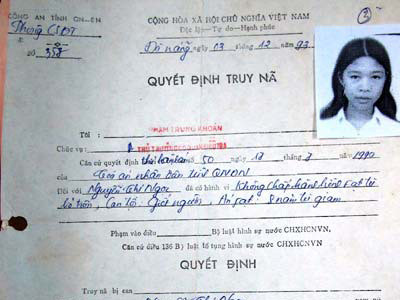 CÔNG AN TỈNH QN-ĐN
CỘNG HÒA XÃ HỘI CHỦ NGHĨA VIỆT NAM
Phòng CSĐT
Độc lập - Tự do - Hạnh phúc
Số 358
Đà nẵng ngày 03 tháng 12 năm 93
QUYẾT ĐỊNH TRUY NÃ
Tôi: PHẠM TRUNG KHOÂN
Chức vụ: THỦ TRƯỞNG CƠ QUAN
Căn cứ quyết định thi hành án số 50 ngày 18 tháng 7 năm 1990
của Tòa án nhân dân tỉnh QNĐN
Đối với Nguyễn Thị Ngọc đã có hành vi không chấp hành
bỏ trốn, Can tội: Giết người, Án phạt: 8 năm tù giam
Phạm vào điều Bộ luật hình sự nước CHXHCNVN,
Căn cứ điều 136 Bộ luật tố tụng hình sự nước CHXHCNVN.
QUYẾT ĐỊNH
Truy nã bị can